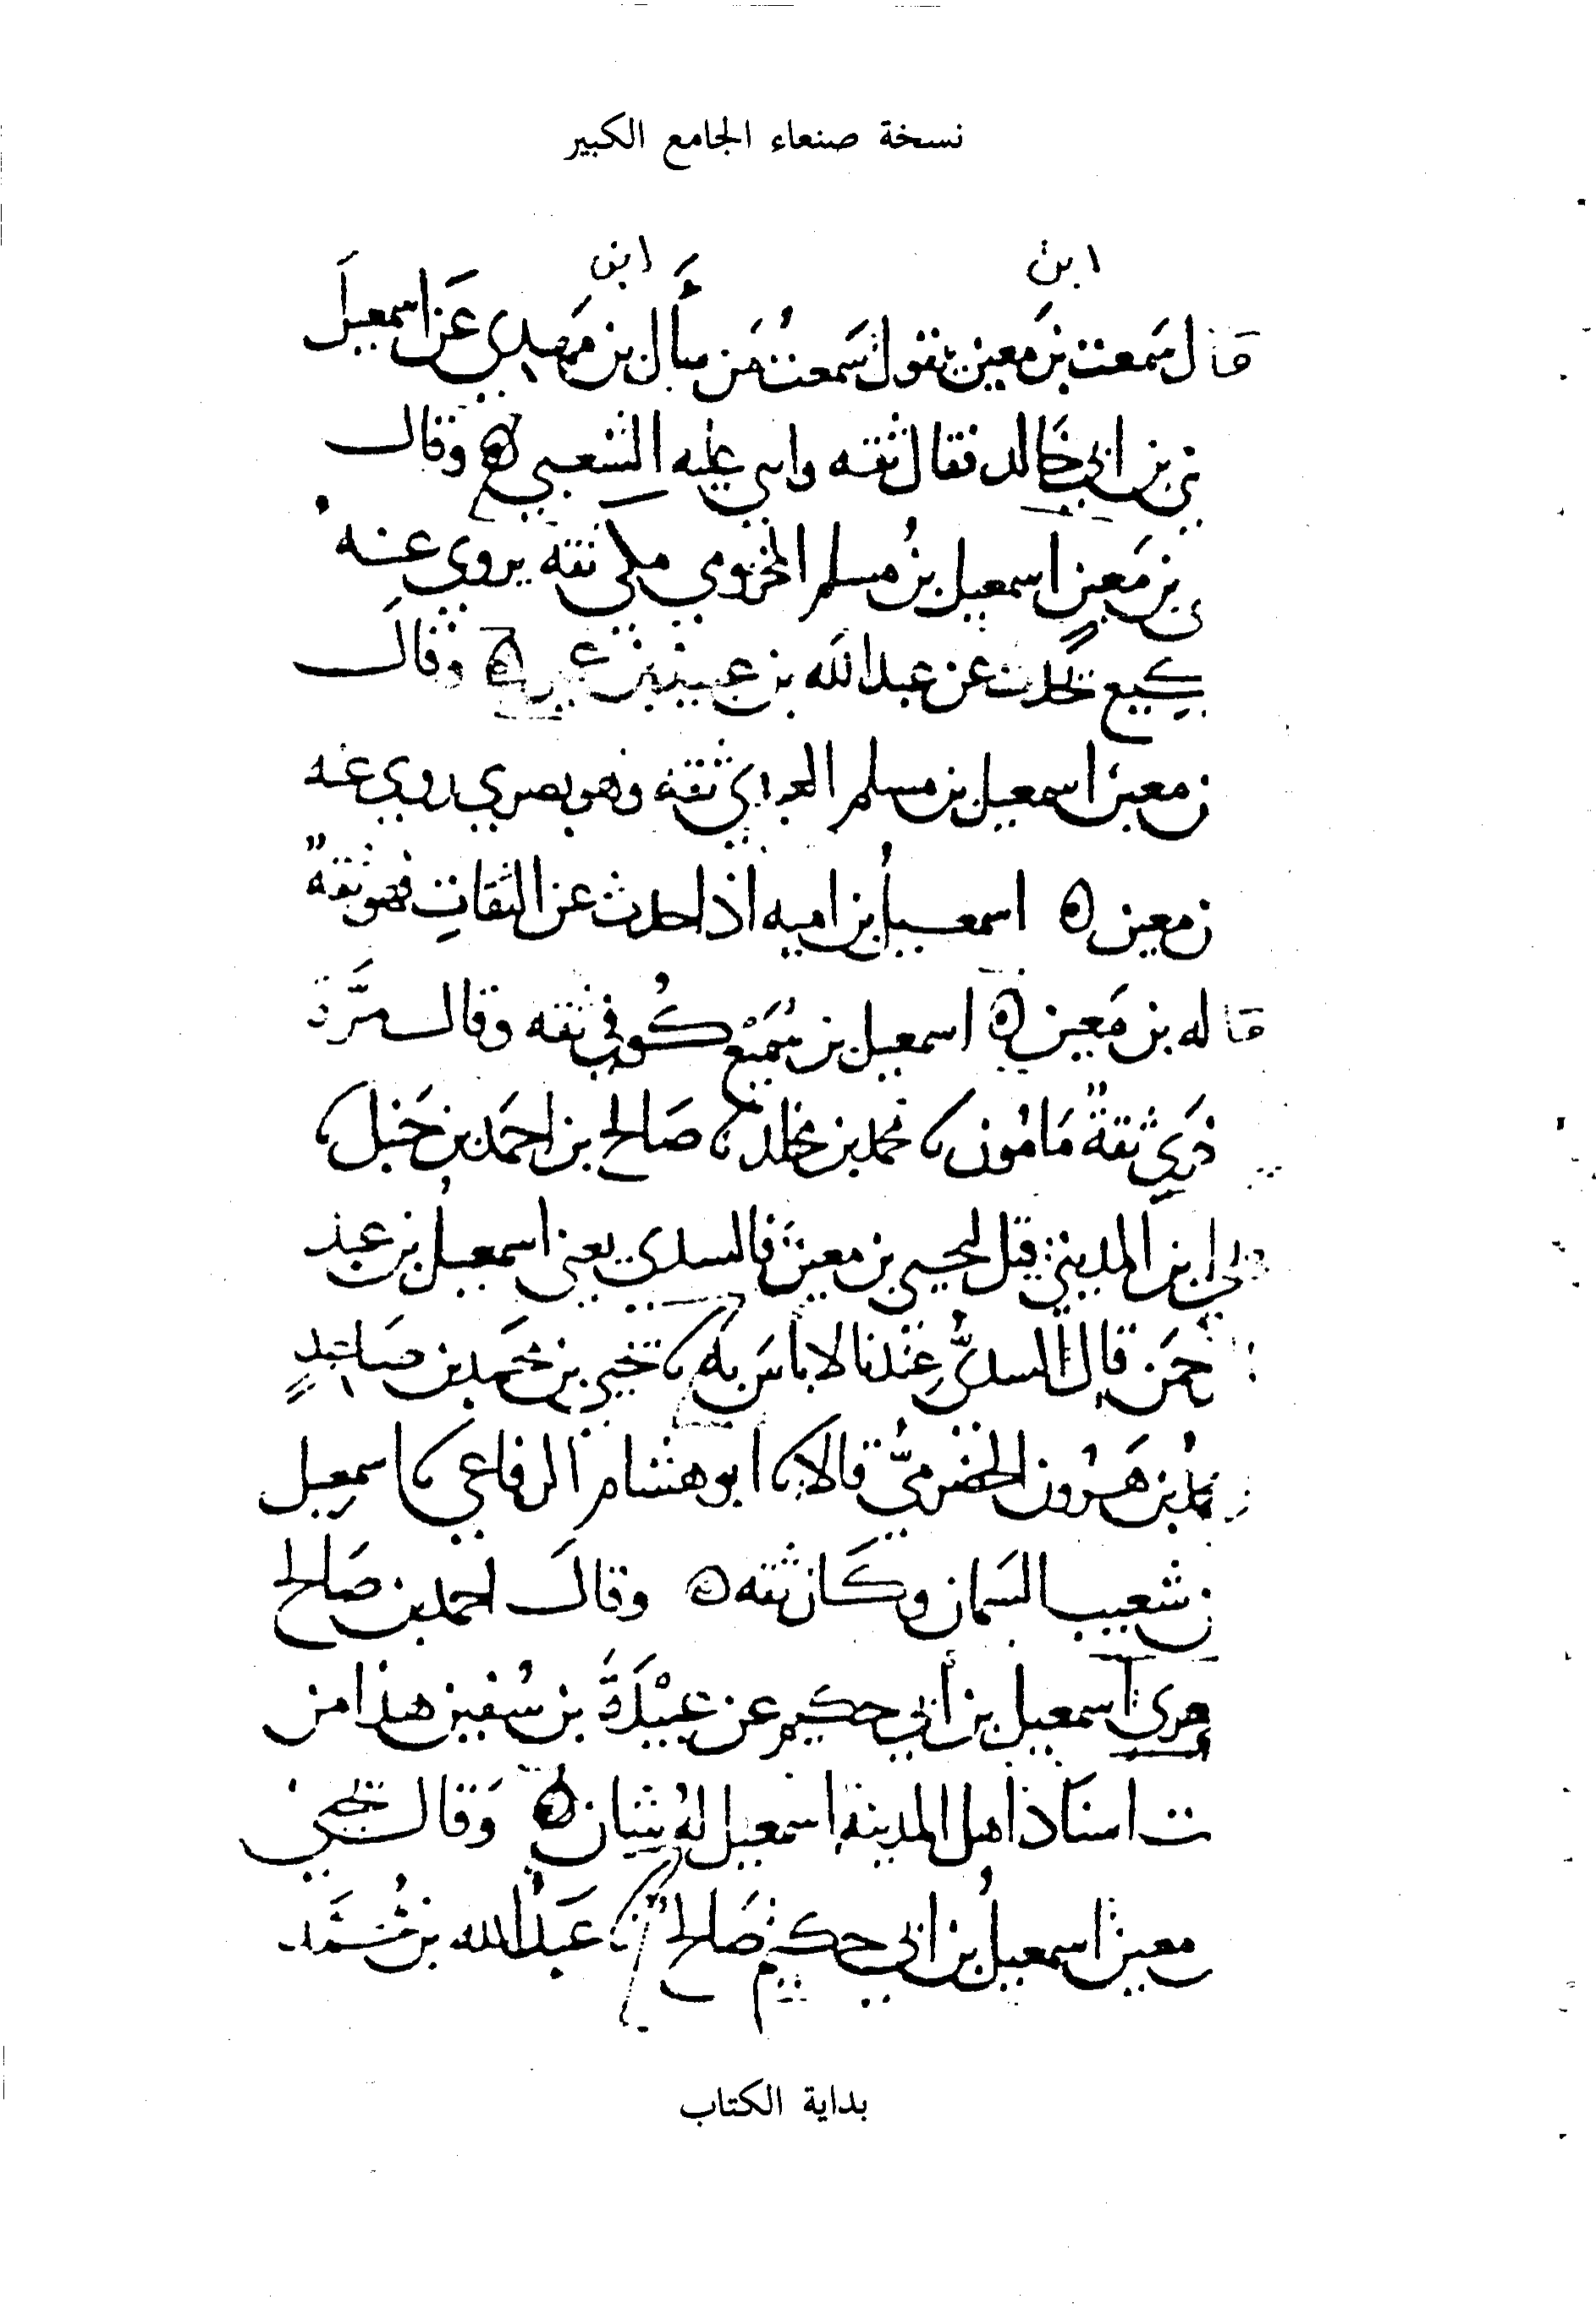 نسخة صنعاء الجامع الكبير
ابن ابن
قال سَمعت بن مَعين يقول سَمعتُ مَن سأل بن مَهدي عَن اسمعيل
بن ابي خالد فقال ثقه واسي عليه الشعبي ه وقال
بن مَعينٍ اسمعيل بنُ مسلم المخزومي مكي ثقة يروي عنه
وكيع يحدث عن عبد الله بن عبيد بن عمير ه وقالَ
بن معين اسمعيل بن مسلم العبدي ثقة وهو بصري روي عنه
بن معين ه اسمعيلُ بن اميه اذا حدث عن الثقاتِ فهو ثقةٌ
قاله بن مَعين ه اسمعيل بن سُمَيْع كُوفي ثقه وقال مرَّة
ثقةٌ مَامُون محمد بن مخلد صَالح بن احمَد بن حَنبل
ابن المديني قيل ليحيى بن معين فالسدي يعني اسمعيلُ بن عبد
حمَن قال السديُّ عِنْدنا لا باسَ به يحيى بن محمَد بن صَاعدٍ
بنُ هَرُون الحَضرميُّ قالا ابو هشام الرفاعي اسمعيل
بن شعيب السَمان وكَان ثقه ه وقالَ احمد بن صَالح
اسمعيل بن أبي حكيم عن عَبِيْدَةَ بن سُفين هذا من
اسنَاد اهل المدينة اسمعيل لهُ شان ه وَقال يحيى
معين اسمعيلُ بن ابي حكيم صَالحٌ عَبدُ الله بن مُحَمَّد
بداية الكتاب